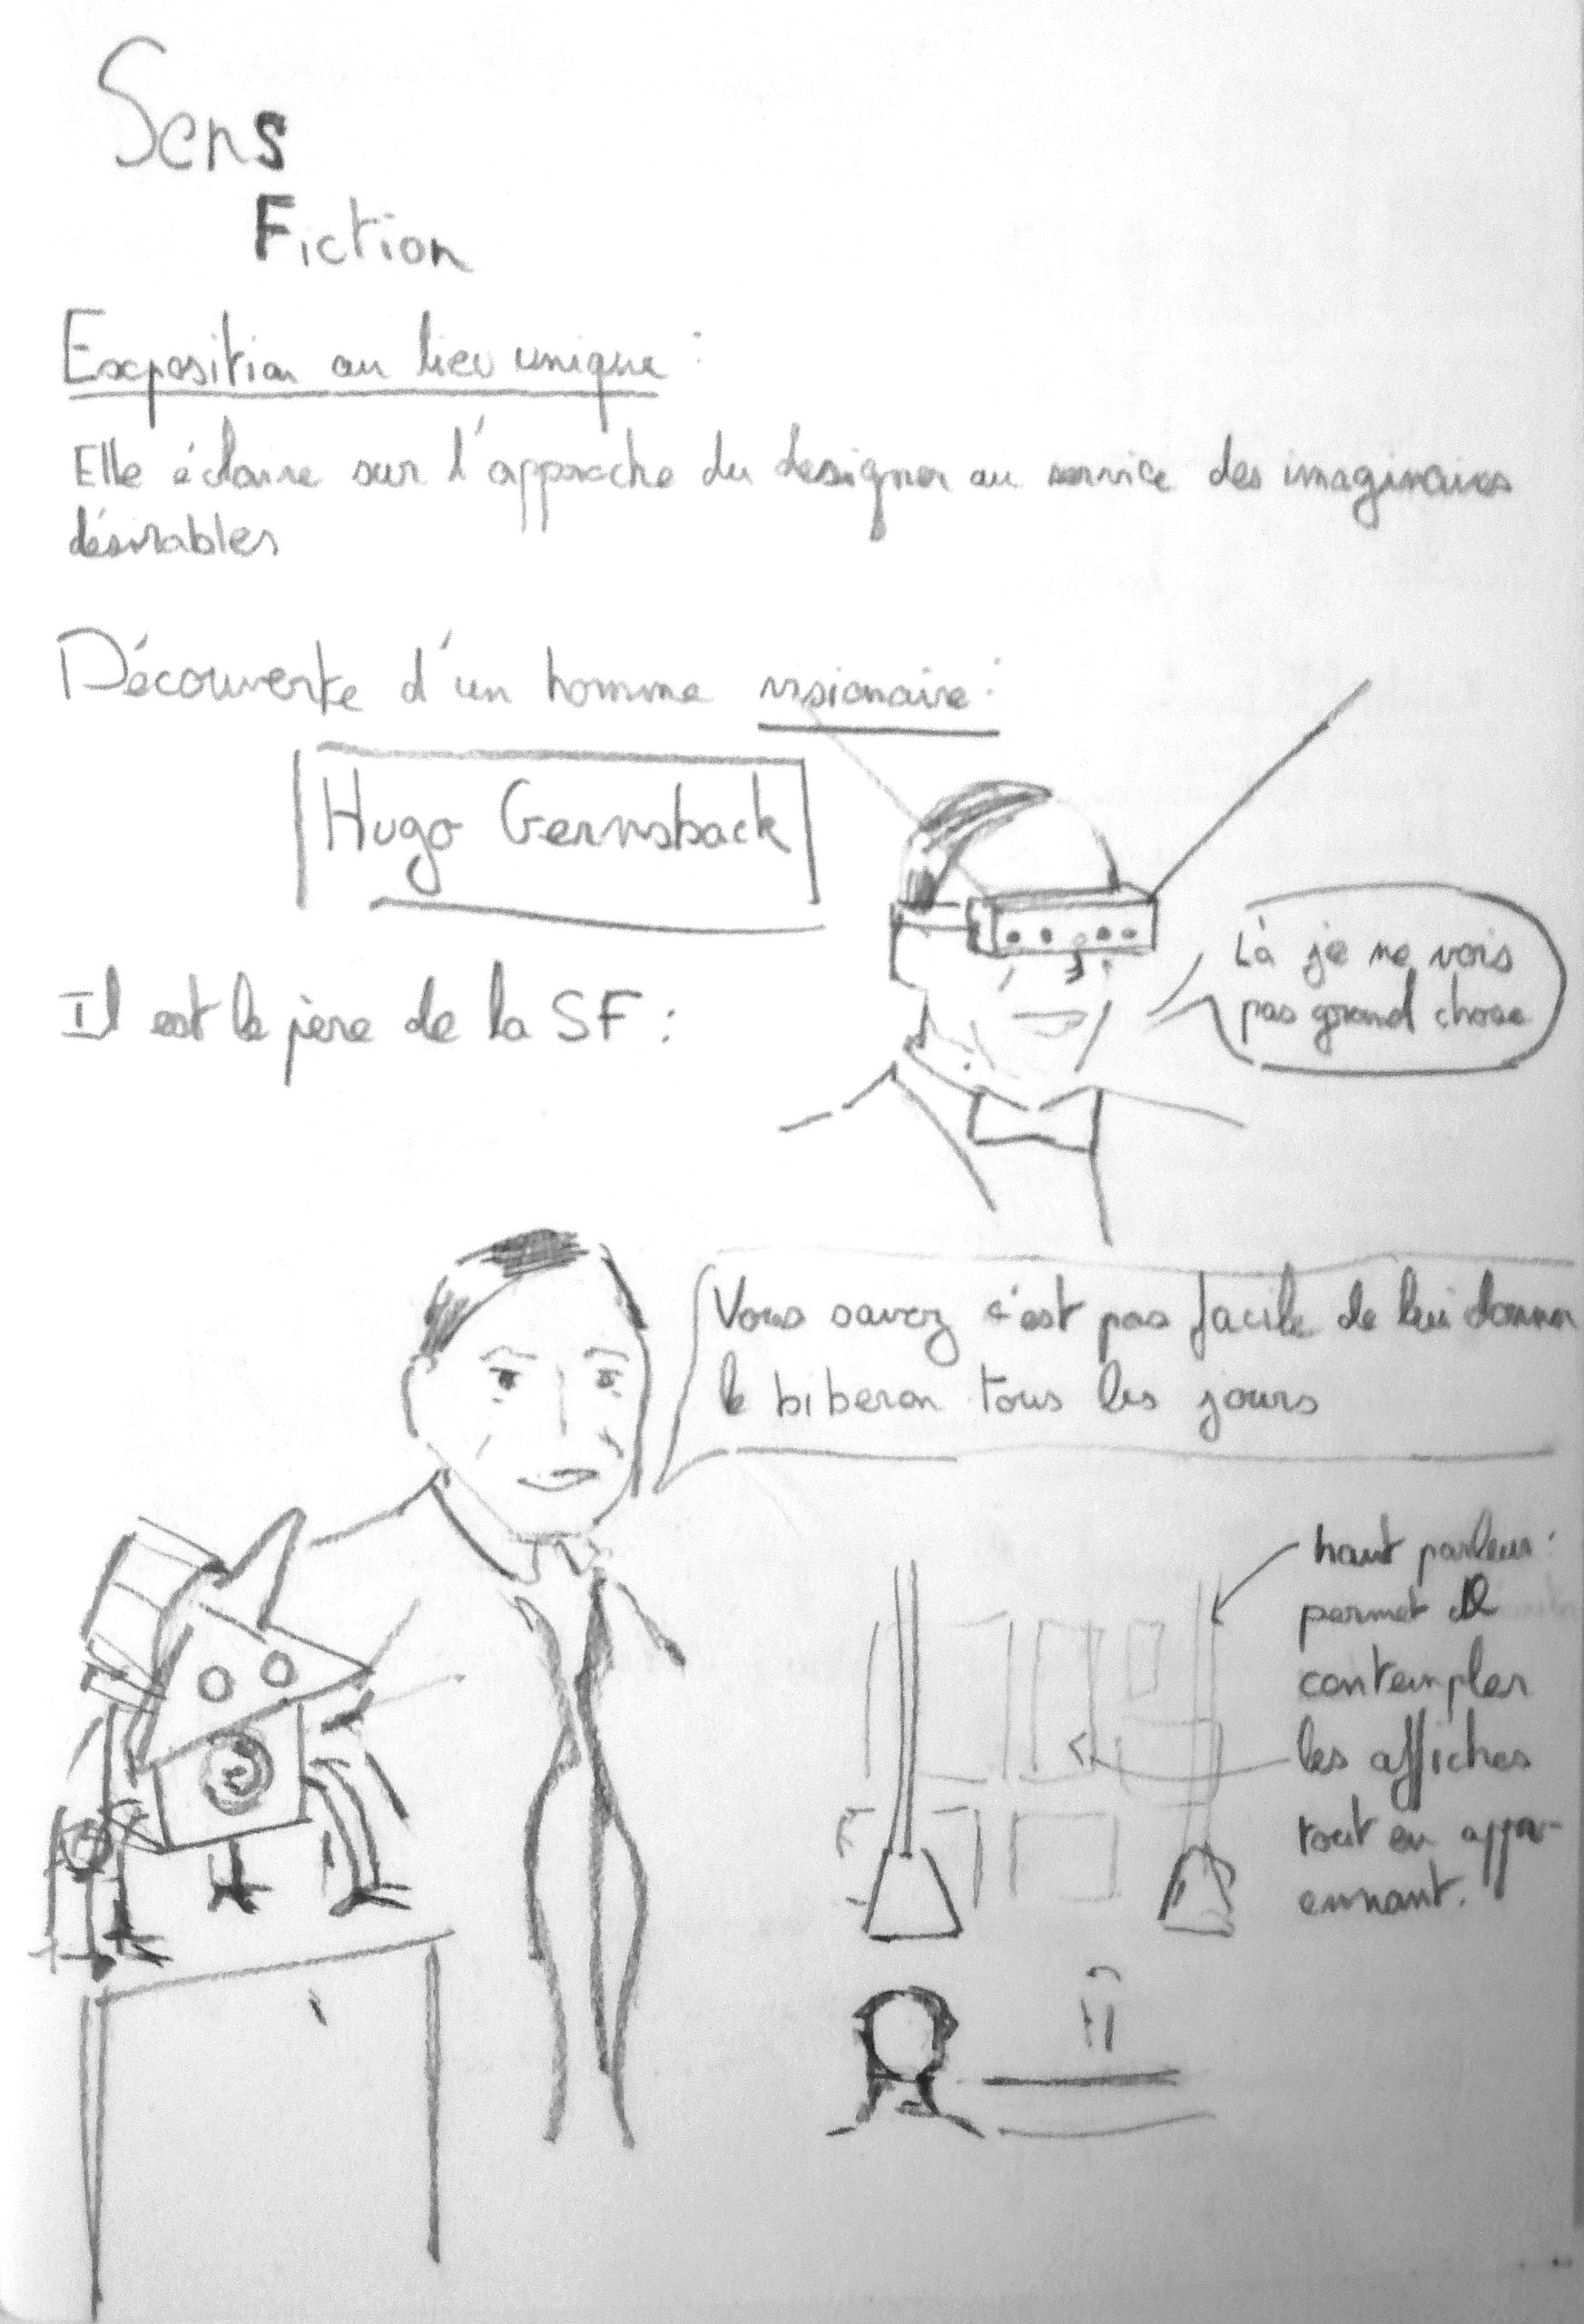 Sens
Fiction
Exposition au lieu unique :
Elle éclaire sur l'approche du designer au service des imaginaires
désirables
Découverte d'un homme visionaire :
Hugo Gernsback
Là je ne vois
pas grand chose
Il est le père de la SF :
Vous savez c'est pas facile de lui donner
le biberon tous les jours
haut parleur :
permet de
contempler
les affiches
tout en appr-
ennant.